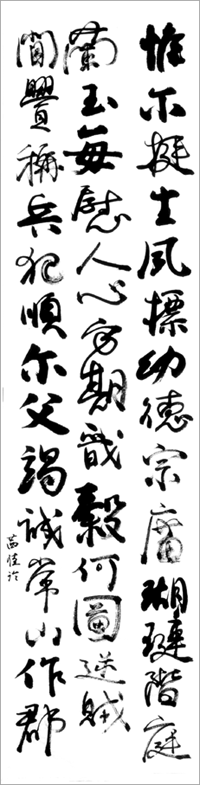 惟尔挺生夙標幼德宗廟瑚璉階庭
蘭玉每慰人心方期戩穀何圖逆賊
間釁稱兵犯順尔父竭誠常山作郡